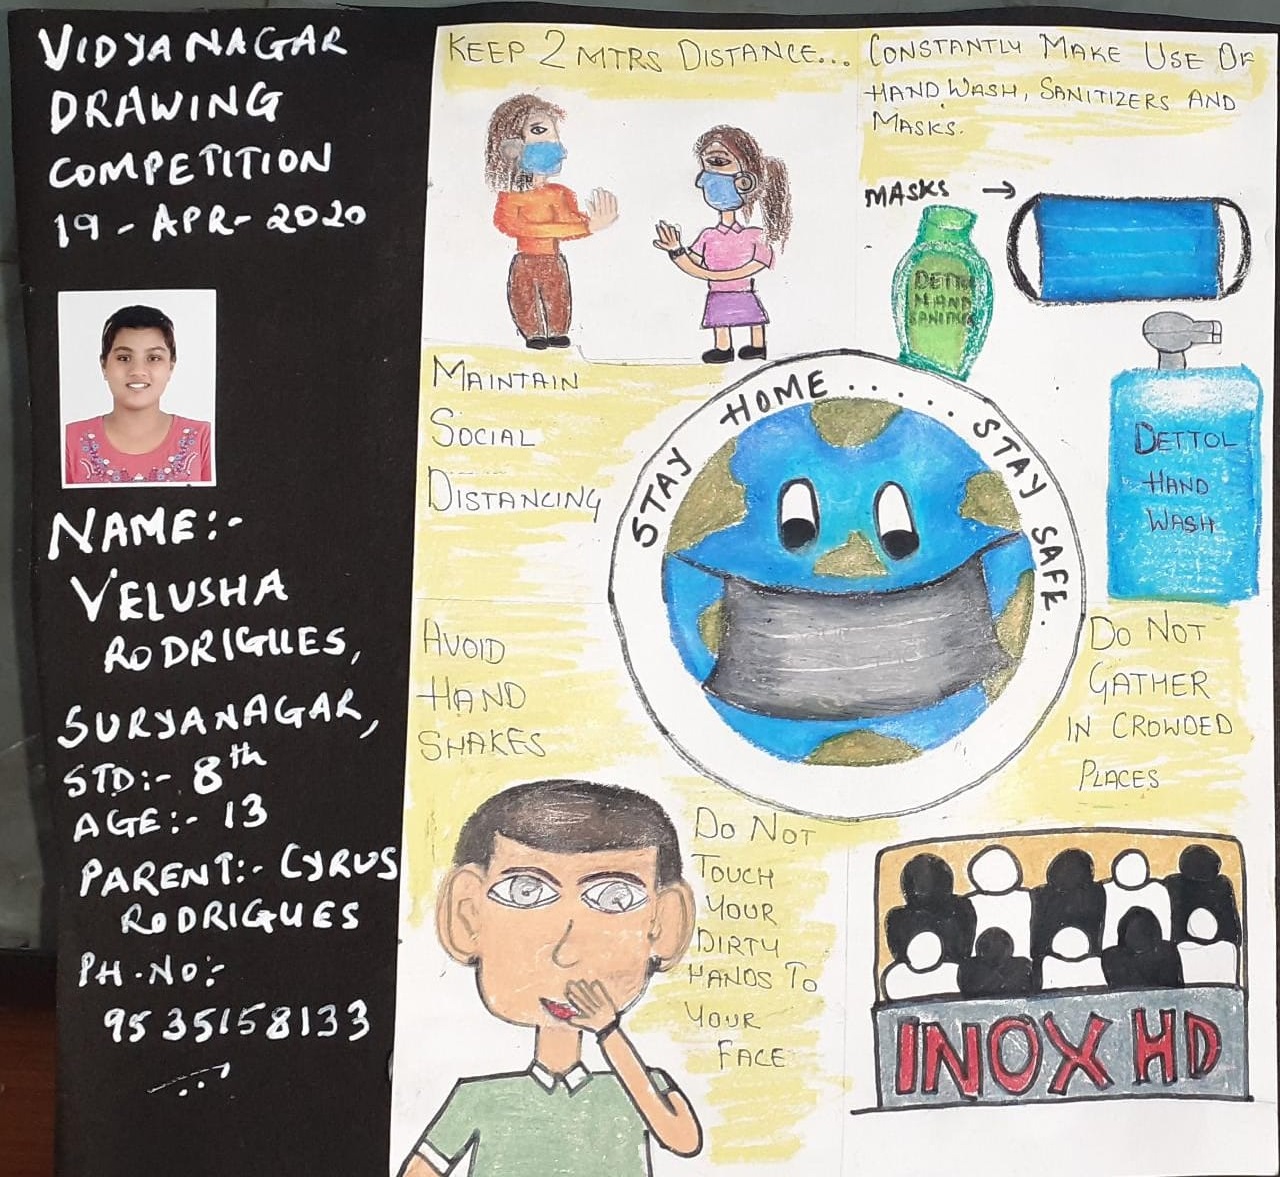 VIDYANAGAR
DRAWING
COMPETITION
19-APR-2020
NAME:-
VELUSHA
RODRIGUES,
SURYANAGAR,
STD:- 8th
AGE:- 13
PARENT:- CYRUS
RODRIGUES
PH.NO:-
9535158133
KEEP 2 MTRS DISTANCE...
CONSTANTLY MAKE USE OF
HAND WASH, SANITIZERS AND
MASKS.
MASKS →
DETTOL
HAND
SANITIZER
MAINTAIN
SOCIAL
DISTANCING
STAY HOME........STAY SAFE.
DETTOL
HAND
WASH
AVOID
HAND
SHAKES
DO NOT
GATHER
IN CROWDED
PLACES
DO NOT
TOUCH
YOUR
DIRTY
HANDS TO
YOUR
FACE
INOX HD